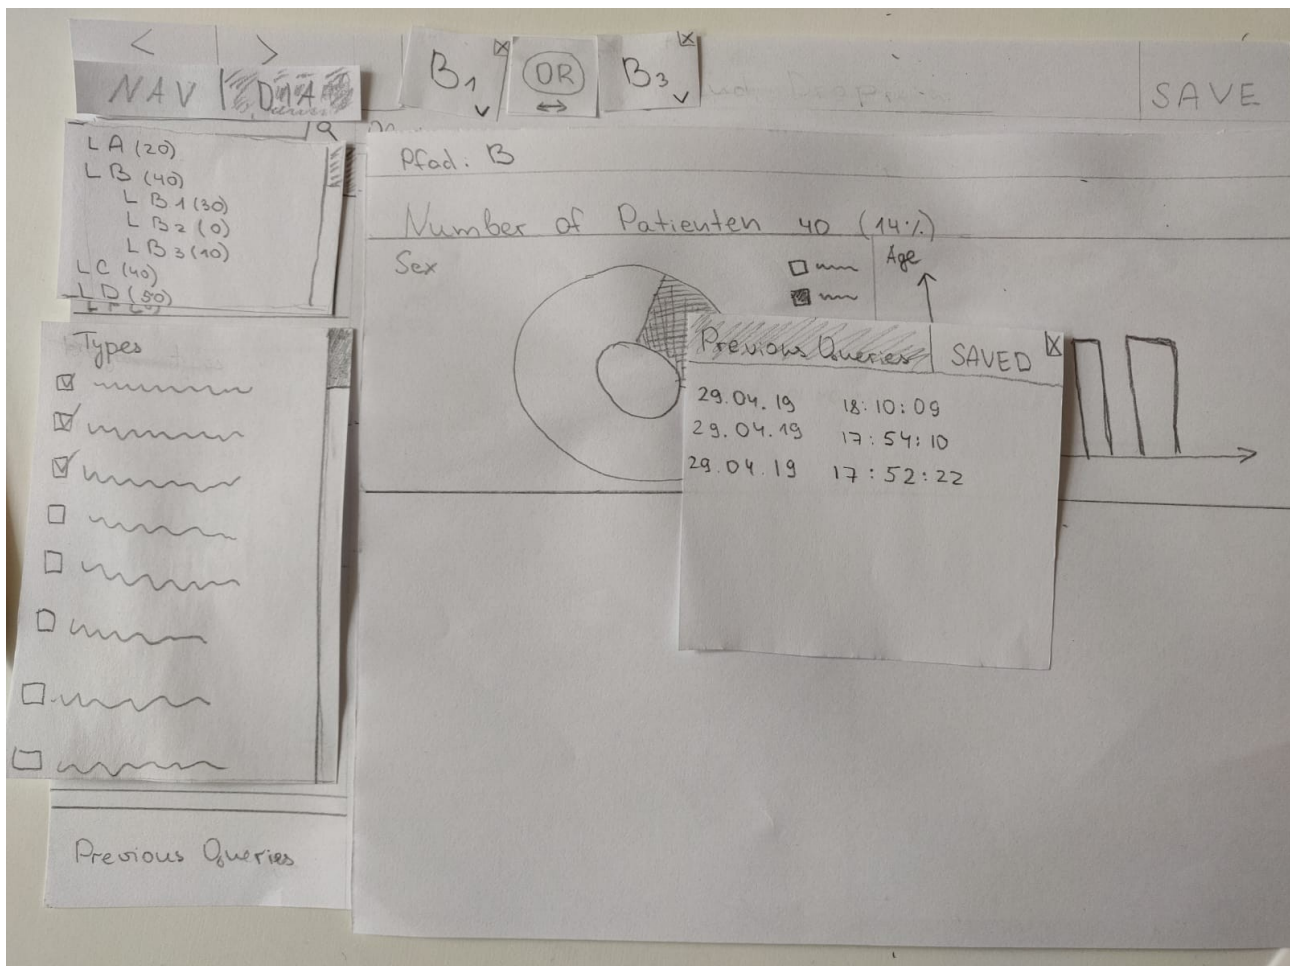 < >
NAV DNA
B1 OR B3
SAVE
L A (20)
L B (40)
L B1 (30)
L B2 (0)
L B3 (10)
L C (40)
L D (50)
Pfad: B
Number of Patienten 40 (14%)
Sex
Age
Types
Previous Queries SAVED
29.04.19 18:10:09
29.04.19 17:54:10
29.04.19 17:52:22
Previous Queries